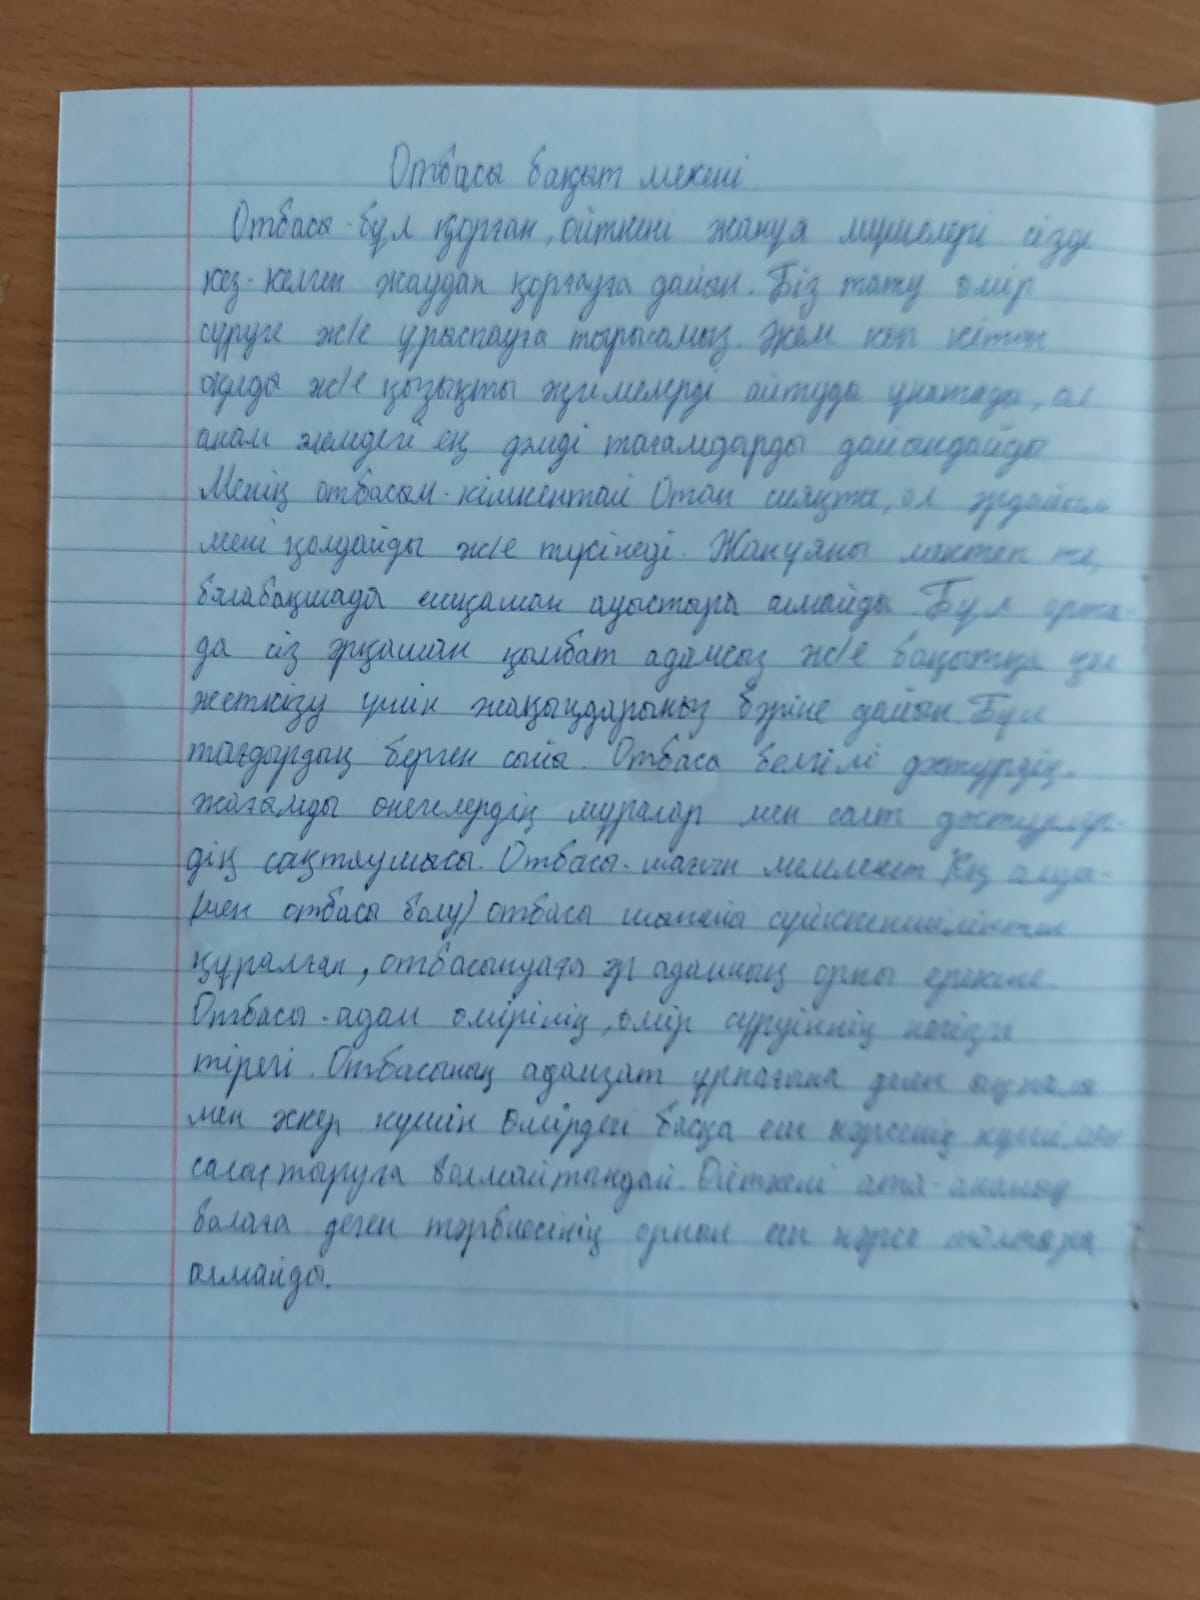 Отбасы бақыт мекені
Отбасы - бұл қорған, өйткені жануя мүшелері сізді
кез-келген жаудан қорғауға дайын. Біз тату өмір
сүруге ж/е ұрыспауға тырысамыз. Әкем көп кітап
оқиды ж/е қызықты әңгімелерді айтуды ұнатады, ал
анам әлемдегі ең дәмді тағамдарды дайындайды
Менің отбасым - кішкентай Отан сияқты, ол әрдайым
мені қолдайды ж/е түсінеді. Жануяны мектеп те,
балабақшада ешқашан ауыстыра алмайды Бұл орта-
да сіз әрқашан қымбат адамсыз ж/е бақытқа қол
жеткізу үшін жақындарыңыз бәріне дайын Бұл
тағдырдың берген сыйы. Отбасы белгілі дәстүрдің,
жағымды өнегелердің мұралар мен салт дәстүрлер-
дің сақтаушысы. Отбасы - шағын мемлекет Кең алды-
мен отбасы болу) отбасы шынайы сүйіспеншіліктен
құралған, отбасынуағы әр адамның орны ерекше.
Отбасы - адам өмірінің, өмір сүруіннің негізгі
тірегі. Отбасының адамзат ұрпағына деген ықпалы
мен әкер күшін өмірдегі басқа еш нәрсенің күшімен
салыстыруға болмайтындай. Өйткені ата-ананың
балаға деген тәрбиесінің орнын еш нәрсе
алмайды.